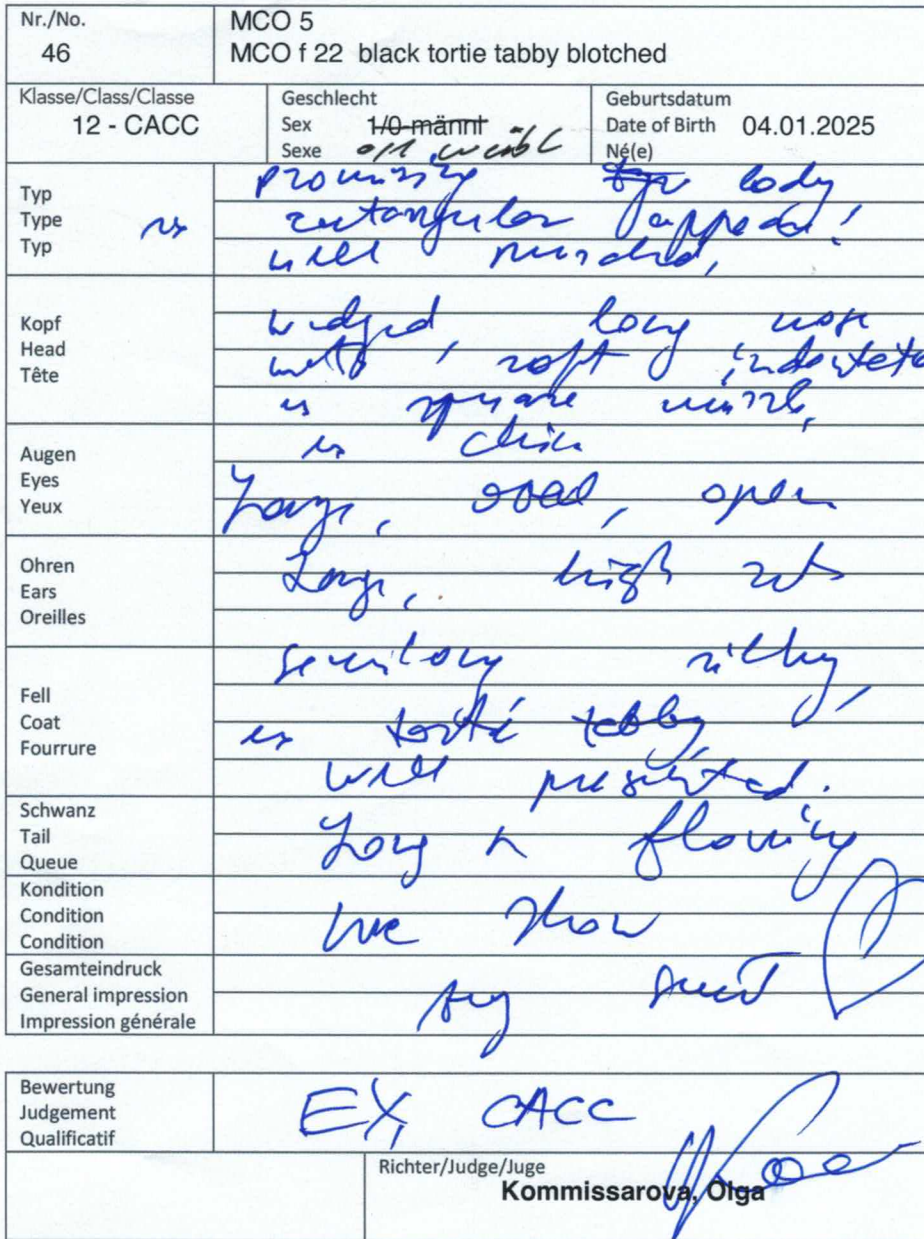 Nr./No.
46
MCO 5
MCO f 22 black tortie tabby blotched
Klasse/Class/Classe
12 - CACC
Geschlecht
Sex 1/0 männl
Sexe 0/1 weibl
Geburtsdatum
Date of Birth 04.01.2025
Né(e)
Typ
Type
Typ
promising body
rectangular
well
Kopf
Head
Tête
wedged, long nose
with soft
square muzzle,
chin
Augen
Eyes
Yeux
Large, oval, open
Ohren
Ears
Oreilles
Large, high
Fell
Coat
Fourrure
semilong silky,
tortie tabby,
well presented.
Schwanz
Tail
Queue
Long flowing
Kondition
Condition
Condition
show
Gesamteindruck
General impression
Impression générale
sweet
Bewertung
Judgement
Qualificatif
EX, CACC
Richter/Judge/Juge
Kommissarova, Olga